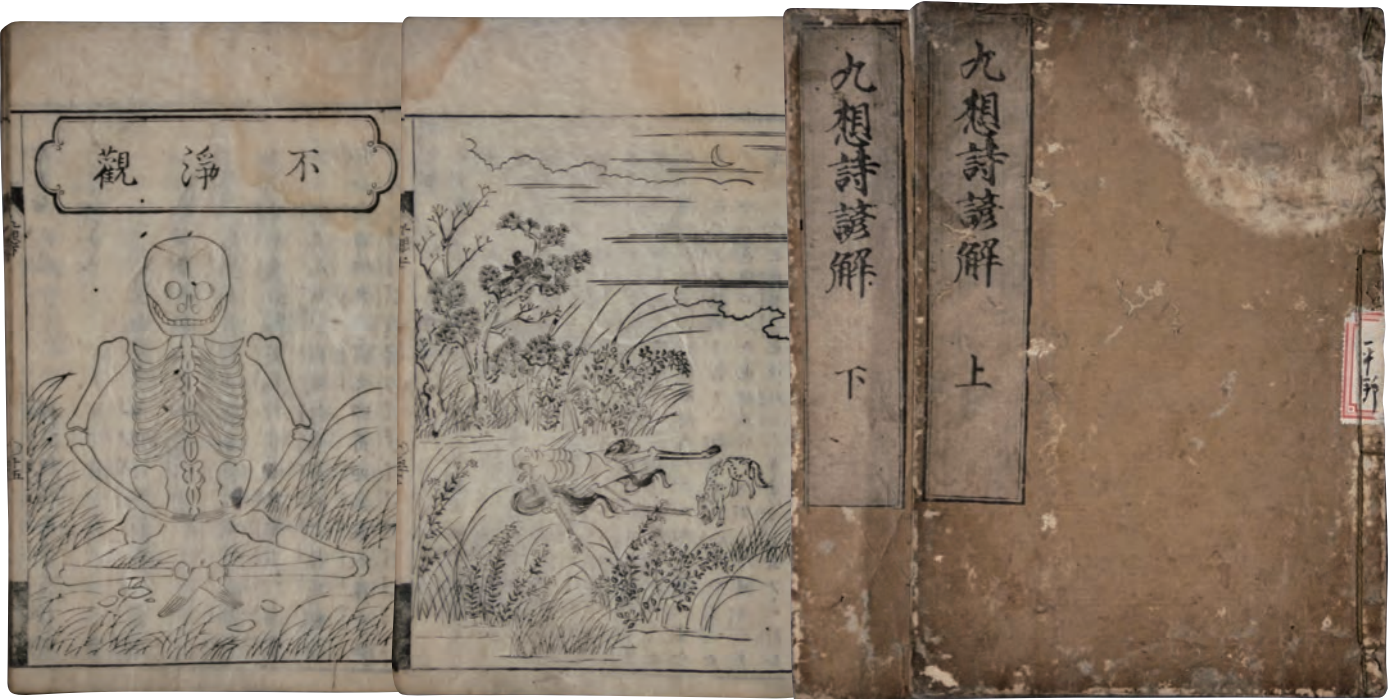 不淨觀
九想詩諺解 下
九想詩諺解 上